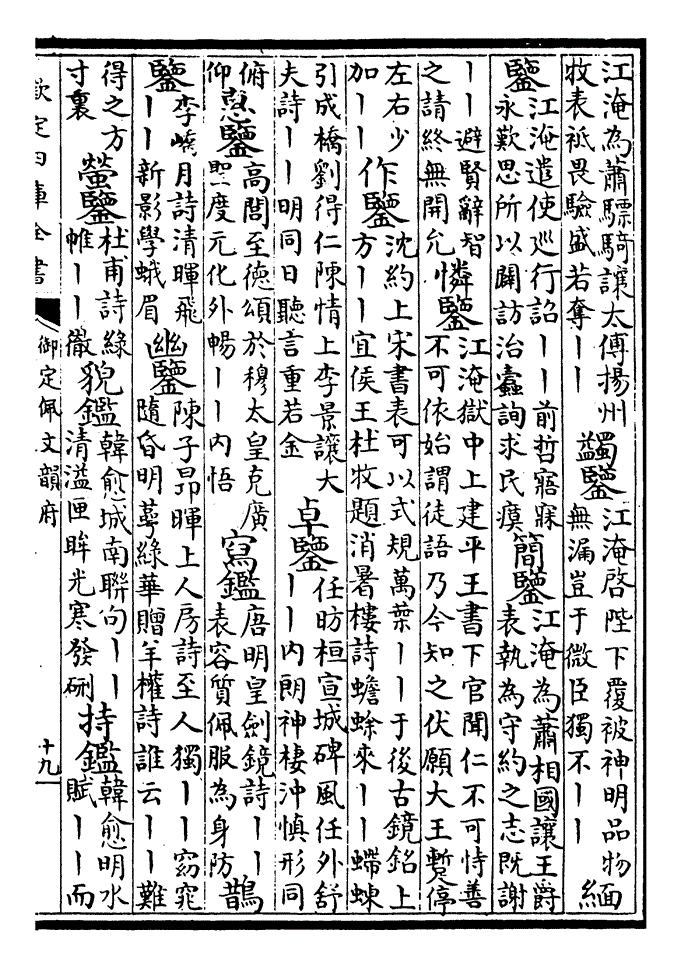 江淹為蕭驃騎讓太傅揚州牧表祇畏驗盛若奪丨丨 蠲鑒 江淹啓陛下覆被神明品物無漏豈于微臣獨不丨丨 緬
鑒 江淹遣使巡行詔丨丨前哲寤寐永歎思所以闢訪治蠹詢求民瘼 簡鑒 江淹為蕭相國讓王爵表執為守約之志既謝
丨丨避賢辭智之請終無開允 憐鑒 江淹獄中上建平王書下官聞仁不可恃善不可依始謂徒語乃今知之伏願大王暫停
左右少加丨丨 作鑒 沈約上宋書表可以式規萬葉丨丨于後古鏡銘上方丨丨宜侯王杜牧題消暑樓詩蟾蜍來丨丨螮蝀
引成橋劉得仁陳情上李景讓大夫詩丨丨明同日聽言重若金 卓鑒 任昉桓宣城碑風任外舒丨丨内朗神棲沖慎形同
俯仰 惠鑒 高閭至德頌於穆太皇克廣聖度元化外暢丨丨内悟 寫鑑 唐明皇劍鏡詩丨丨表容質佩服為身防 鵲
鑒 李嶠月詩清暉飛丨丨新影學蛾眉 幽鑒 陳子昂暉上人房詩至人獨丨丨窈窕隨昏明萼綠華贈羊權詩誰云丨丨難
得之方寸裏 螢鑒 杜甫詩綠帷丨丨徹 貌鑑 韓愈城南聯句丨丨清溢匣眸光寒發硎 持鑑 韓愈明水賦丨丨而
欽定四庫全書
御定佩文韻府
十九